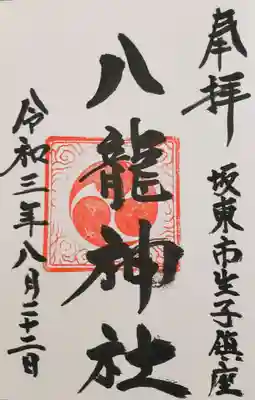 奉拝
坂東市生子鎮座
八龍神社
令和三年八月二十二日